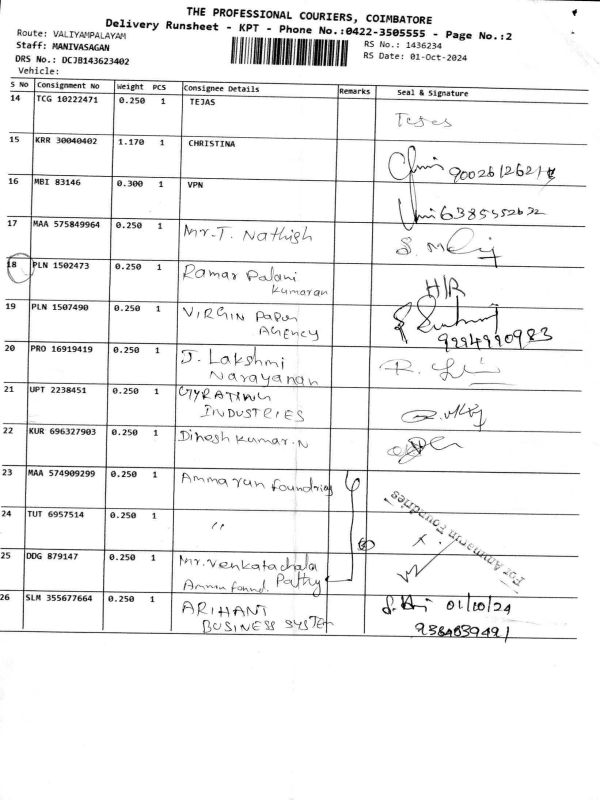 THE PROFESSIONAL COURIERS, COIMBATORE
Delivery Runsheet - KPT - Phone No.:0422-3505555 - Page No.:2
Route: VALIYAMPALAYAM
RS No.: 1436234
Staff: MANIVASAGAN
RS Date: 01-Oct-2024
DRS No.: DCJB143623402
Vehicle:
S No Consignment No Weight PCS Consignee Details Remarks Seal & Signature
14 TCG 10222471 0.250 1 TEJAS Tejas
15 KRR 30040402 1.170 1 CHRISTINA
16 MBI 83146 0.300 1 VPN
17 MAA 575849964 0.250 1 Mr.T. Nathish
18 PLN 1502473 0.250 1 Ramar Palani
Kumaran
H/R
19 PLN 1507490 0.250 1 VIRGIN Paper
AGENCY
9994990983
20 PRO 16919419 0.250 1 J. Lakshmi
Narayanan
21 UPT 2238451 0.250 1 GYRATING
INDUSTRIES
22 KUR 696327903 0.250 1 Dinesh kumar.N
23 MAA 574909299 0.250 1 Ammarun foundries
For Ammarun Foundries
24 TUT 6957514 0.250 1 "
25 DDG 879147 0.250 1 Mr.Venkatachala
Pathy
26 SLM 355677664 0.250 1 ARIHANT
BUSINESS SYSTEM
01/10/24